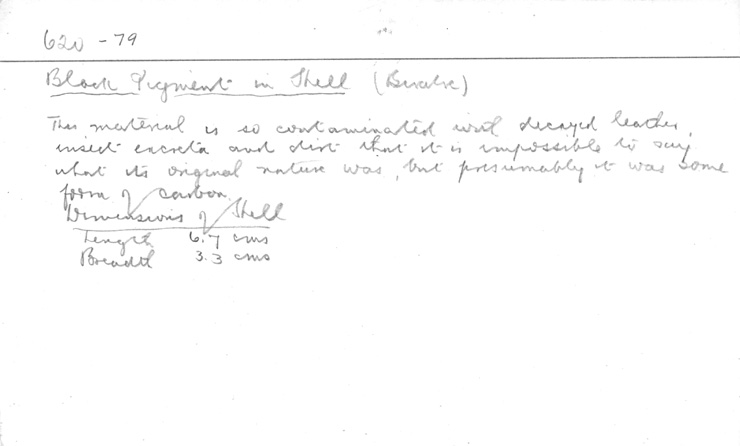 620 - 79
Black Pigment in Shell (Bivalve)
This material is so contaminated with decayed leather,
insect excreta and dirt that it is impossible to say
what its original nature was, but presumably it was some
form of carbon.
Dimensions of Shell
Length 6.7 cms
Breadth 3.3 cms